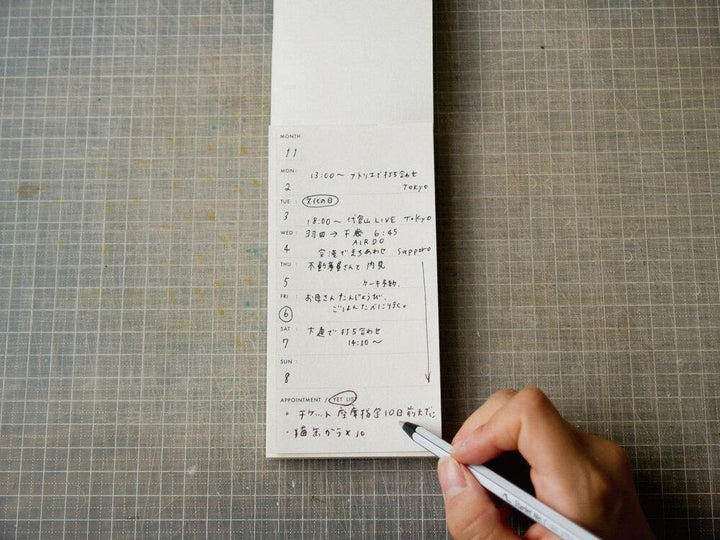 MONTH
11
MON:
2
13:00〜 アトリエで打ち合わせ
Tokyo
TUE:
3
文化の日
18:00〜 代官山 LIVE Tokyo
WED:
4
羽田→千歳 6:45
AIRDO
空港でまちあわせ Sapporo
THU:
5
不動産屋さんと内見
ケーキ予約.
FRI:
6
お母さんたんじょうび.
ごはんたべに行く。
SAT:
7
大通で打ち合わせ
14:30〜
SUN:
8
APPOINTMENT / YET LIST
・チケット 座席指定 10日前までに
・猫缶 から × 10